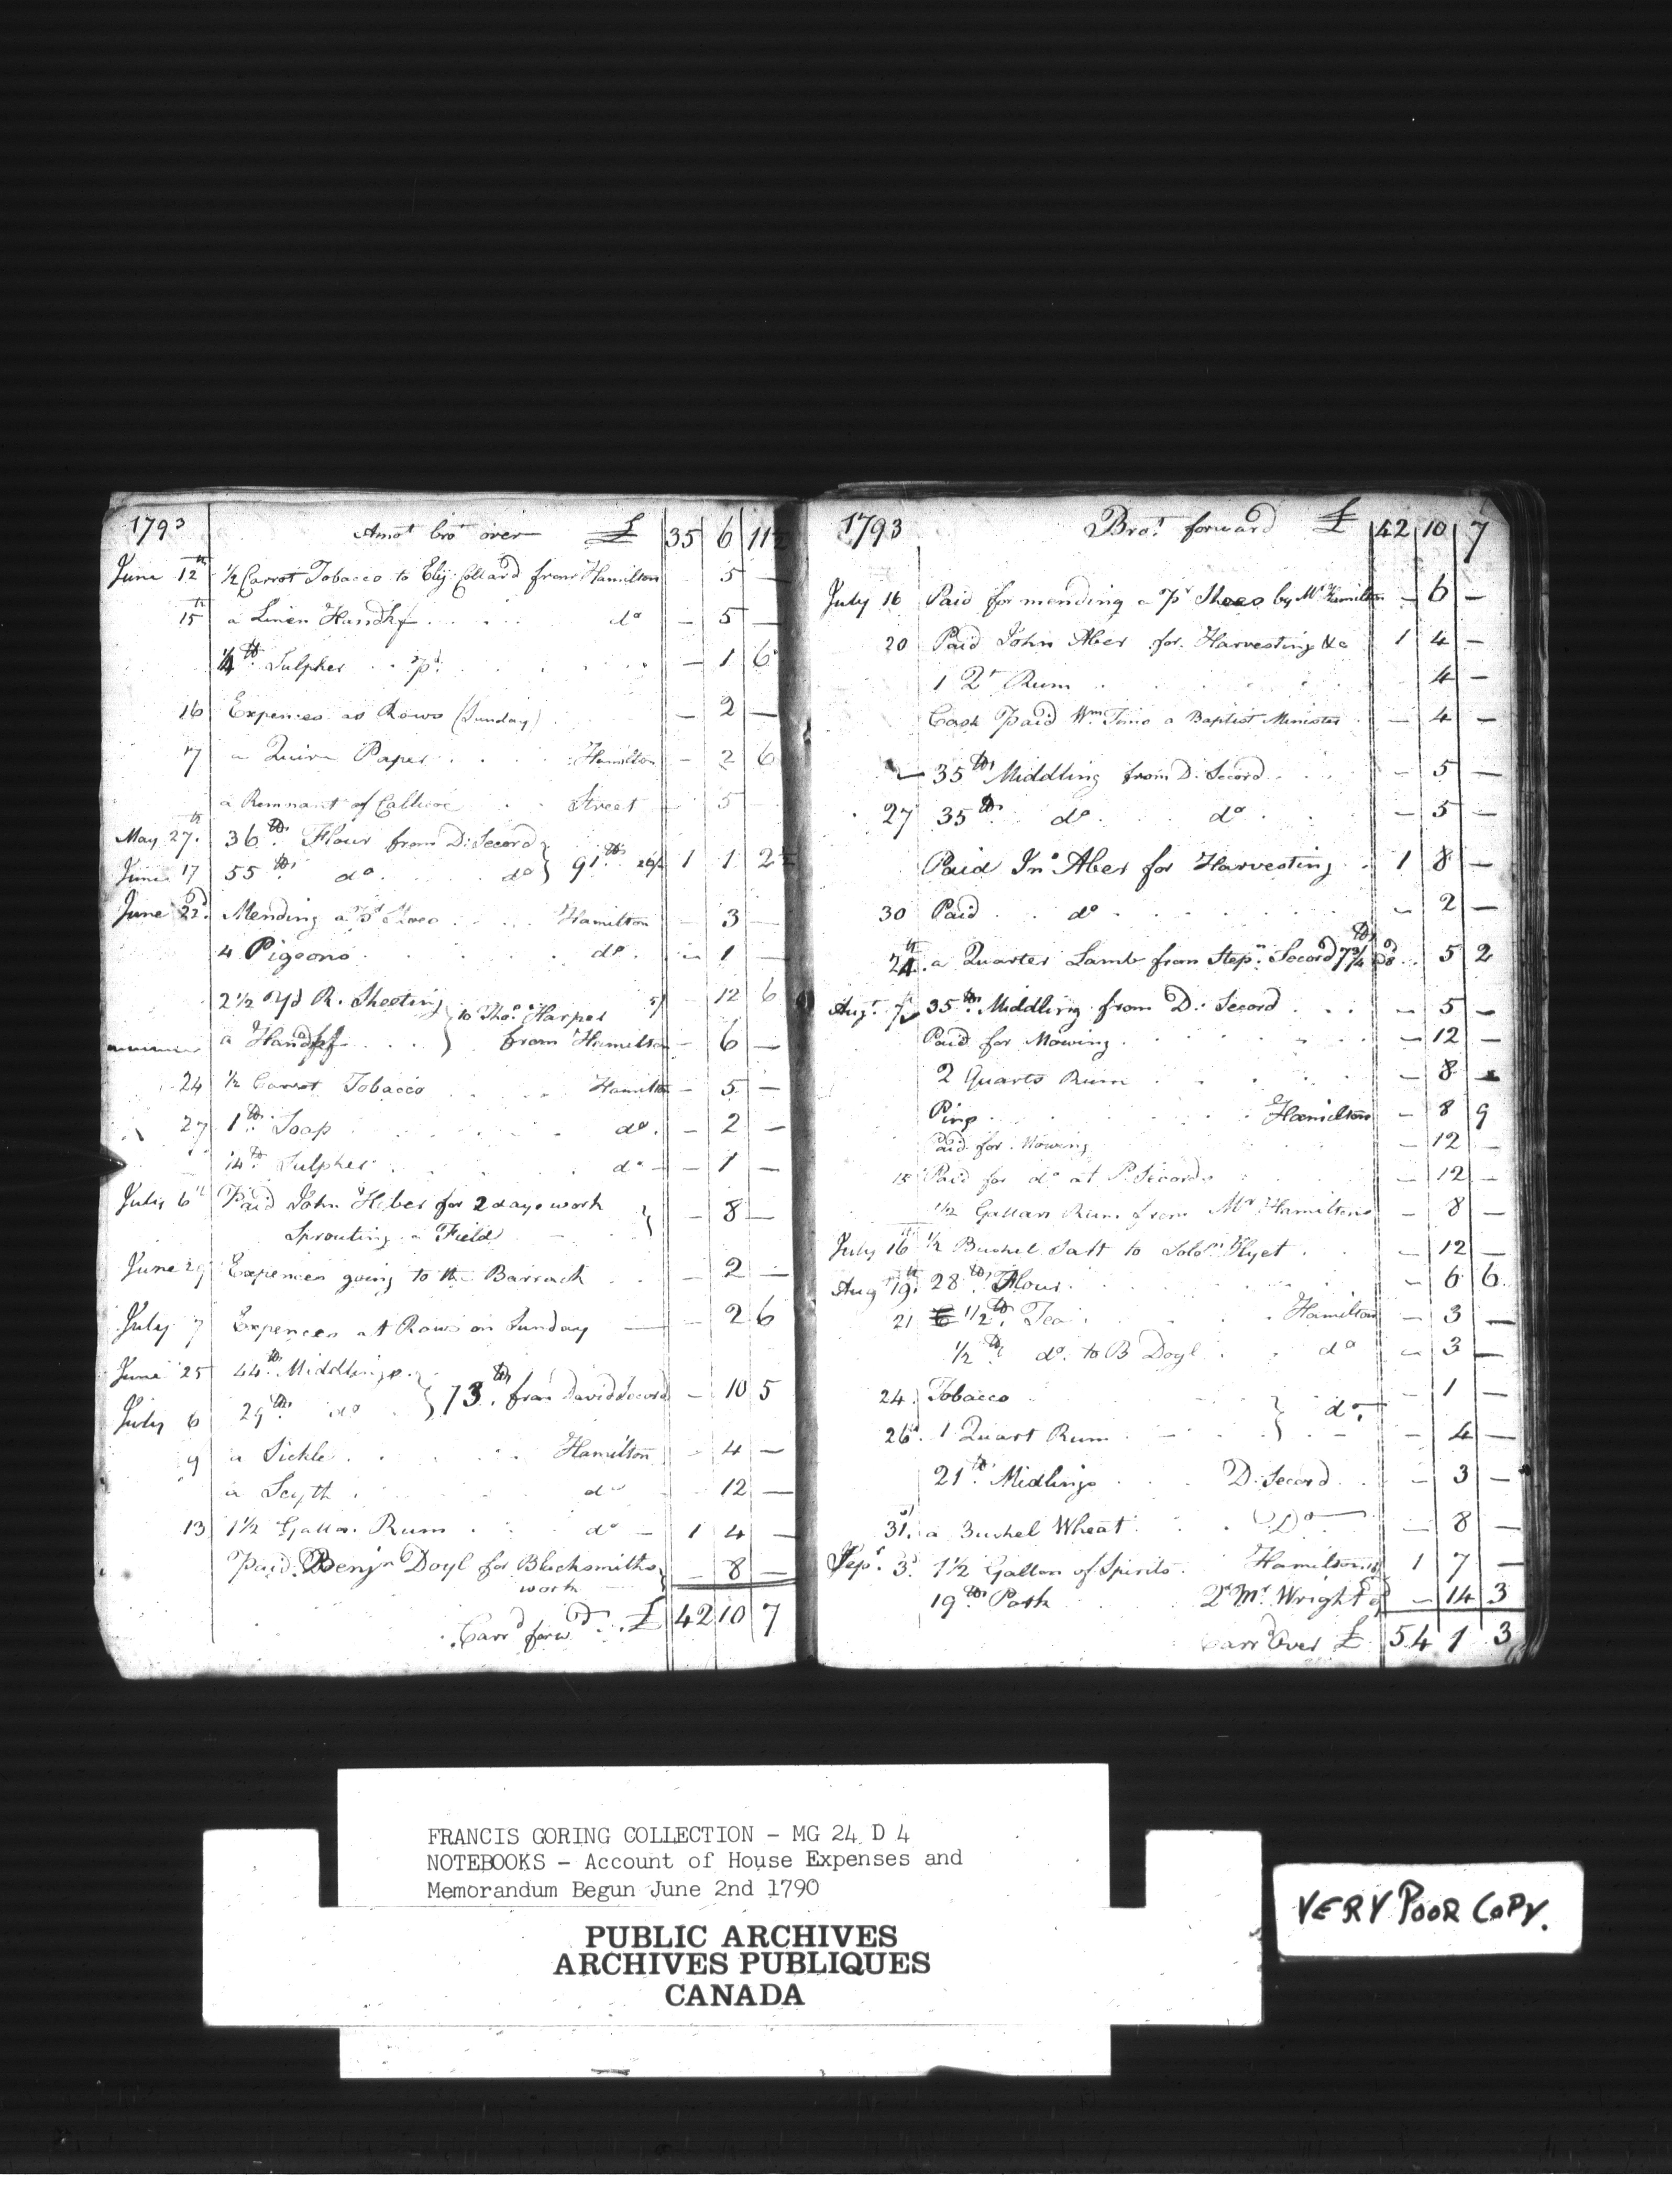 1793 Amot bro.t over £ 35 6 11½
June 12th ½ Carrot Tobacco to Elij: Collard from Hamilton 5 —
15th a Linen Handkf . . . . do — 5 —
¼ lb Sulpher . . . — 1 6
16 Expences at Rows (Sunday) . — 2 —
17 a Quire Paper . . . . Hamilton — 2 6
a Remnant of Callicoe . . Street — 5
May 27th. 36 lb. Flour from D: Secord }
June 17 55 lb. do . . . . do } 91 lb. 1 1 2½
June 22d. Mending a Pr Shoes . . . Hamilton — 3 —
4 Pigeons . . . . . do. — 1 —
2½ Yd R. Sheeting } to Thos. Harper 5/ 12 6
a Handkf . . . } from Hamilton — 6 —
24 ½ Carrot Tobacco . . . . Hamilton — 5 —
27 1 lb. Soap . . . . . do. — 2 —
¼ lb. Sulpher . . . . . do — — 1 —
July 6th Paid John Heber for 2 days work }
Sprouting a Field — } — 8 —
June 29 Expences going to the Barrack . . — 2 —
July 7 Expences at Rows on Sunday — 2 6
June 25 44 lb. Middlings }
July 6 29 lb. do . } 73 lb. from David Secord — 10 5
9 a Sickle . . . . . Hamilton — 4 —
a Scyth . . . . do 12 —
13 1½ Gallon Rum . . . do — 1 4 —
Paid Benjn Doyl for Blacksmiths }
work } — 8 —
Carrd forwd . . £ 42 10 7
1793 Brot. forward £ 42 10 7
July 16 Paid for mending a Pr Shoes by Mr Hamilton — 6 —
20 Paid John Aber for Harvesting &c 1 4 —
1 Qt Rum . . . . . 4 —
Cash Paid Wm. Tims a Baptist Minister . — 4 —
35 lb Middling from D: Secord . . . — 5 —
27 35 lb. do . . . do . . — 5 —
Paid Jno Aber for Harvesting . 1 8 —
30 Paid . . do . . . . . — 2 —
24th. a Quarter Lamb from Stepn. Secord 7¾ lb 8d . . 5 2
Augt. 7th 35 lb. Middling from D: Secord . . . — 5 —
Paid for Mowing . . . . . — 12 —
2 Quarts Rum . . . . — 8 —
Pins . . . . . Hamiltons — 8 9
Paid for Mowing — 12 —
15 Paid for do at P. Secords — 12 —
1½ Gallan Rum from Mr Hamiltons — 8 —
July 16th ½ Bushel Salt to Solon . — 12 —
Aug 19th. 28 lb. Flour . . . . . — 6 6
21 ½ lb. Tea . . . . Hamilton — 3 —
½ lb do. to B Doyl . . do — 3 —
24. Tobacco . . . } — 1 —
26th. 1 Quart Rum . — . } do. — 4 —
21 lb. Midlings . . . D: Secord . . — 3 —
31st. a Bushel Wheat . . . Do — — 8 —
Sepr. 3d. 1½ Gallon of Spirits . Hamiltons 1 7 —
19 lb. Pork . . . Mr. Wright — 14 3
Carrd Over £ 54 1 3
FRANCIS GORING COLLECTION - MG 24 D 4
NOTEBOOKS - Account of House Expenses and
Memorandum Begun June 2nd 1790
PUBLIC ARCHIVES
ARCHIVES PUBLIQUES
CANADA
VERY POOR COPY.